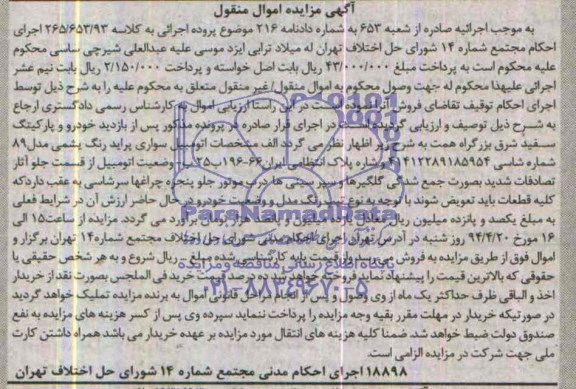 آگهی مزایده اموال منقول
به موجب اجرائیه صادره از شعبه ۶۵۳ به شماره دادنامه ۲۱۶ موضوع پرونده اجرائی به کلاسه ۲۶۵/۶۵۳/۹۳ اجرای
احکام مجتمع شماره ۱۴ شورای حل اختلاف تهران له میلاد ترابی ایزد موسی علیه عبدالعلی شیرچی ساسی محکوم
علیه محکوم است به پرداخت مبلغ ۴۳/۰۰۰/۰۰۰ ریال بابت اصل خواسته و پرداخت ۲/۱۵۰/۰۰۰ ریال بابت نیم عشر
اجرائی علیهذا محکوم له جهت وصول محکوم به اموال منقول/غیر منقول متعلق به محکوم علیه را به شرح ذیل توسط
اجرای احکام توقیف تقاضای فروش آنرا نموده است در این راستا ارزیابی اموال به کارشناس رسمی دادگستری ارجاع
به شرح ذیل توصیف و ارزیابی گردیده است. در اجرای قرار صادره در پرونده مذکور پس از بازدید خودرو و پارکینگ
سفید شرق بزرگراه همت به شرح زیر اظهار نظر می گردد الف مشخصات اتومبیل سواری پراید رنگ یشمی مدل۸۹
شماره شاسی ۴۱۴۱۲۲۸۹۱۸۵۹۵۴ و شماره پلاک انتظامی ایران۶۶-۱۹۶ب۲۵ وضعیت اتومبیل از قسمت جلو آثار
تصادفات شدید بصورت جمع شدگی گلگیرها و سپر سینی ها درب موتور جلو پنجره چراغها سرشاسی به عقب دارد که
کلیه قطعات باید تعویض شوند با توجه به نوع سیستم رنگ مدل و وضعیت خودرو در حال حاضر ارزش آن در شرایط فعلی
به مبلغ یکصد و پانزده میلیون ریال معادل یازده میلیون و پانصد هزار تومان برآورد می گردد. مزایده از ساعت۱۵ الی
۱۶ مورخ ۹۴/۴/۲۰ روز شنبه در آدرس تهران اجرای احکام مدنی شورای حل اختلاف مجتمع شماره۱۴ تهران برگزار و
اموال فوق از طریق مزایده به فروش می رسد و از قیمت پایه کارشناسی شده مبلغ - ریال شروع و به هر شخص حقیقی یا
حقوقی که بالاترین قیمت را پیشنهاد نماید فروخته خواهد شد ده درصد قیمت خرید فی المجلس بصورت نقد از خریدار
اخذ و الباقی ظرف حداکثر یک ماه از وی وصول و پس از انجام مراحل قانونی اموال به برنده مزایده تملیک خواهد گردید
در صورتیکه خریدار در مهلت مقرر بقیه وجه مزایده را پرداخت ننماید سپرده وی پس از کسر هزینه های مزایده به نفع
صندوق دولت ضبط خواهد شد. ضمنا کلیه هزینه های انتقال مورد مزایده بر عهده خریدار می باشد همراه داشتن کارت
ملی جهت شرکت در مزایده الزامی است.
۱۱۸۸۹۸ اجرای احکام مدنی مجتمع شماره ۱۴ شورای حل اختلاف تهران
ParsNamadData
پایگاه اطلاع رسانی مناقصه و مزایده
۰۲۱-۸۸۳۴۹۶۷۰-۵